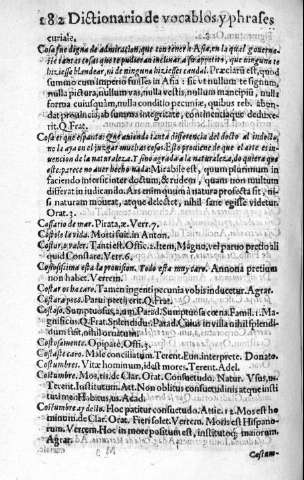 182 Dictionario de vocablos, y phrases
curiale.
Cosa fue digna de admiracion, que con tener a Asia, en la qual governa-
sse tantas cosas que te pudieran inclinar a su appetito, que ninguna te
hiziesse blandear, ni de ninguna hiziesses caudal. Præclarū est, quod
summo cum imperio fueris in Asia: sic vt nullum te signum,
nulla pictura, nullum vas, nulla vestis, nullum mancipiū, nulla
forma cuiusquam, nulla conditio pecuniæ, quibus reb. abun-
dat prouincia, ab summa integritate, continentiaque deduxe-
rit. Q. Frat.
Cosa es que espanta: Que aniendo tanta differencia del docto al indocto,
no la aya en el juzgar muchas cosas. Esto proviene de que el arte es in-
vencion de la naturaleza. Y sino agrada a la naturaleza, do quiera que
este, parece no auer hecho nada: Mirabile est, quum plurimum in
faciendo intersit inter doctum, & rudem, quam non multum
differat in iudicando. Ars enim quum à natura profecta sit, ni-
si naturam moueat, atque delectet, nihil sane egisse videtur.
Orat. 3.
Cossario de mar. Pirata, æ. Verr. 7.
Costole la vida. Morti fuit. in Anton.
Costar, o valer. Tanti est. Offic. 2. Item, Magno, vel paruo pretio ali
quid Constare. Verr. 6.
Costosissima esta la prouision. Todo esta muy caro. Annona pretium
non habet. Verrem.
Costar os ha caro. Tamen ingenti pecunia vobis inducetur. Agrar.
Costara poco. Parui pretij erit. Q. Frat.
Costoso. Sumptuosus, a, um. Parad. Sumptuosa cœna. Famil. 11. Ma-
gnificus. Q. Frat. Splendidus. Parad. Cuius in villa nihil splendi-
dum fuit, nihil ornatum.
Costosamente. Opiparè. Offi. 3.
Costaste caro. Malè conciliatum. Terent. Eun. interprete. Donato.
Costumbres. Vitæ hominum, id ust mores. Terent. Adel.
Costumbre. Mos, tis. de Clar. Orat. Consuetudo. Natur. Vsus, us.
Terent. Institutum. Att. Non obitus consuetudinis atque insti
tuti mei. Habitus, us. Acad.
Costumbre ay dello. Hoc patitur consuetudo. Attic. 12. Mos est ho
minum. de Clar. Orat. Fieri solet. Verrem. Moris est Hispano-
rum. Verrem. Hoc in more positum est, institutoq; maiorum.
Agrar.
Costum-